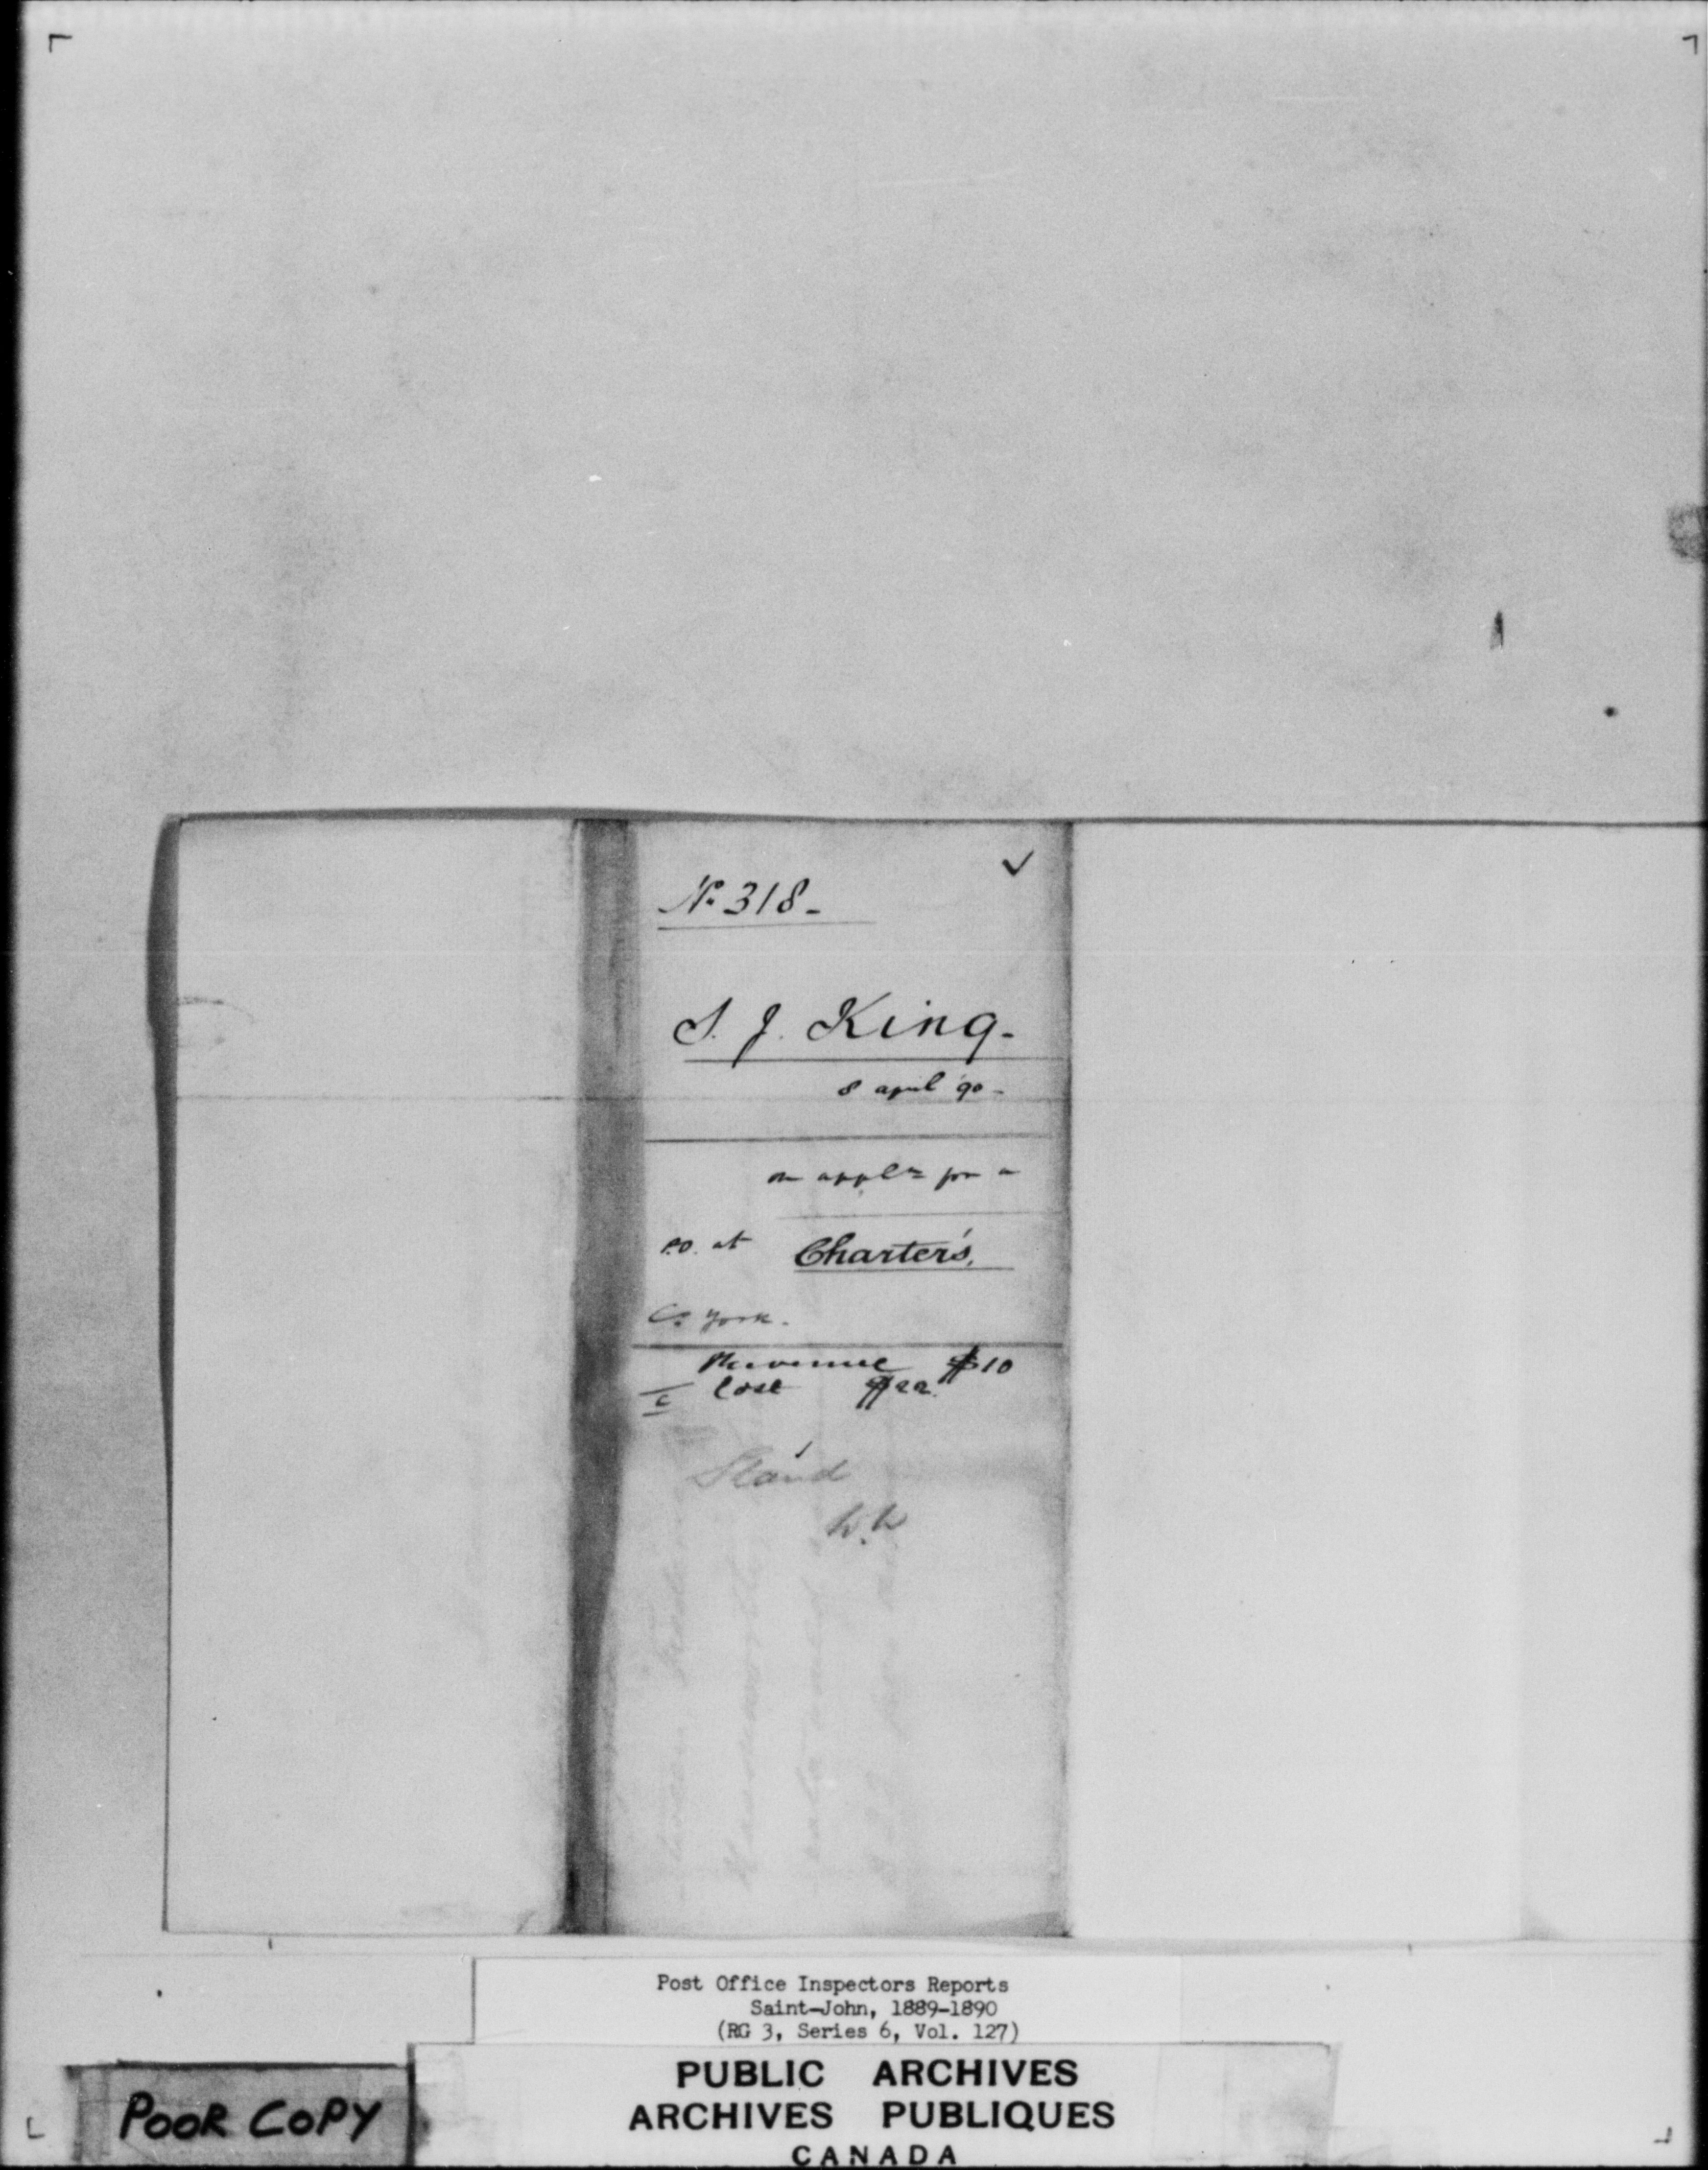 ✓
No. 318-
S. J. King-
8 april '90-
on appln for a
P.O. at Charter's,
Co. York.
Revenue $10
Cost $22.
Stand
W.W
Post Office Inspectors Reports
Saint-John, 1889-1890
(RG 3, Series 6, Vol. 127)
PUBLIC ARCHIVES
ARCHIVES PUBLIQUES
CANADA
POOR COPY